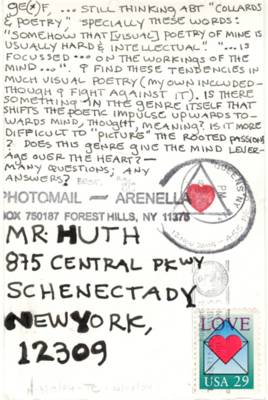 GE(X)F, ... STILL THINKING ABT "COLLARDS
& POETRY" SPECIALLY THESE WORDS:
"SOMEHOW THAT [VISUAL] POETRY OF MINE IS
USUALLY HARD & INTELLECTUAL" "... IS
FOCUSSED ... ON THE WORKINGS OF THE
MIND ...". I FIND THESE TENDENCIES IN
MUCH VISUAL POETRY (MY OWN INCLUDED-
THOUGH I FIGHT AGAINST IT). IS THERE
SOMETHING IN THE GENRE ITSELF THAT
SHIFTS THE POETIC IMPULSE UPWARDS TO-
WARDS MIND, THOUGHT, MEANING? IS IT MORE
DIFFICULT TO "PICTURE" THE ROOTED PASSIONS
? DOES THIS GENRE GIVE THE MIND LEVER-
AGE OVER THE HEART?—
MANY QUESTIONS; ANY
ANSWERS?
PHOTOMAIL - ARENELLA
BOX 750187 FOREST HILLS, NY 11375
QUEENS NY
MR. HUTH
875 CENTRAL PKWY
SCHENECTADY
NEW YORK,
12309
LOVE
USA 29